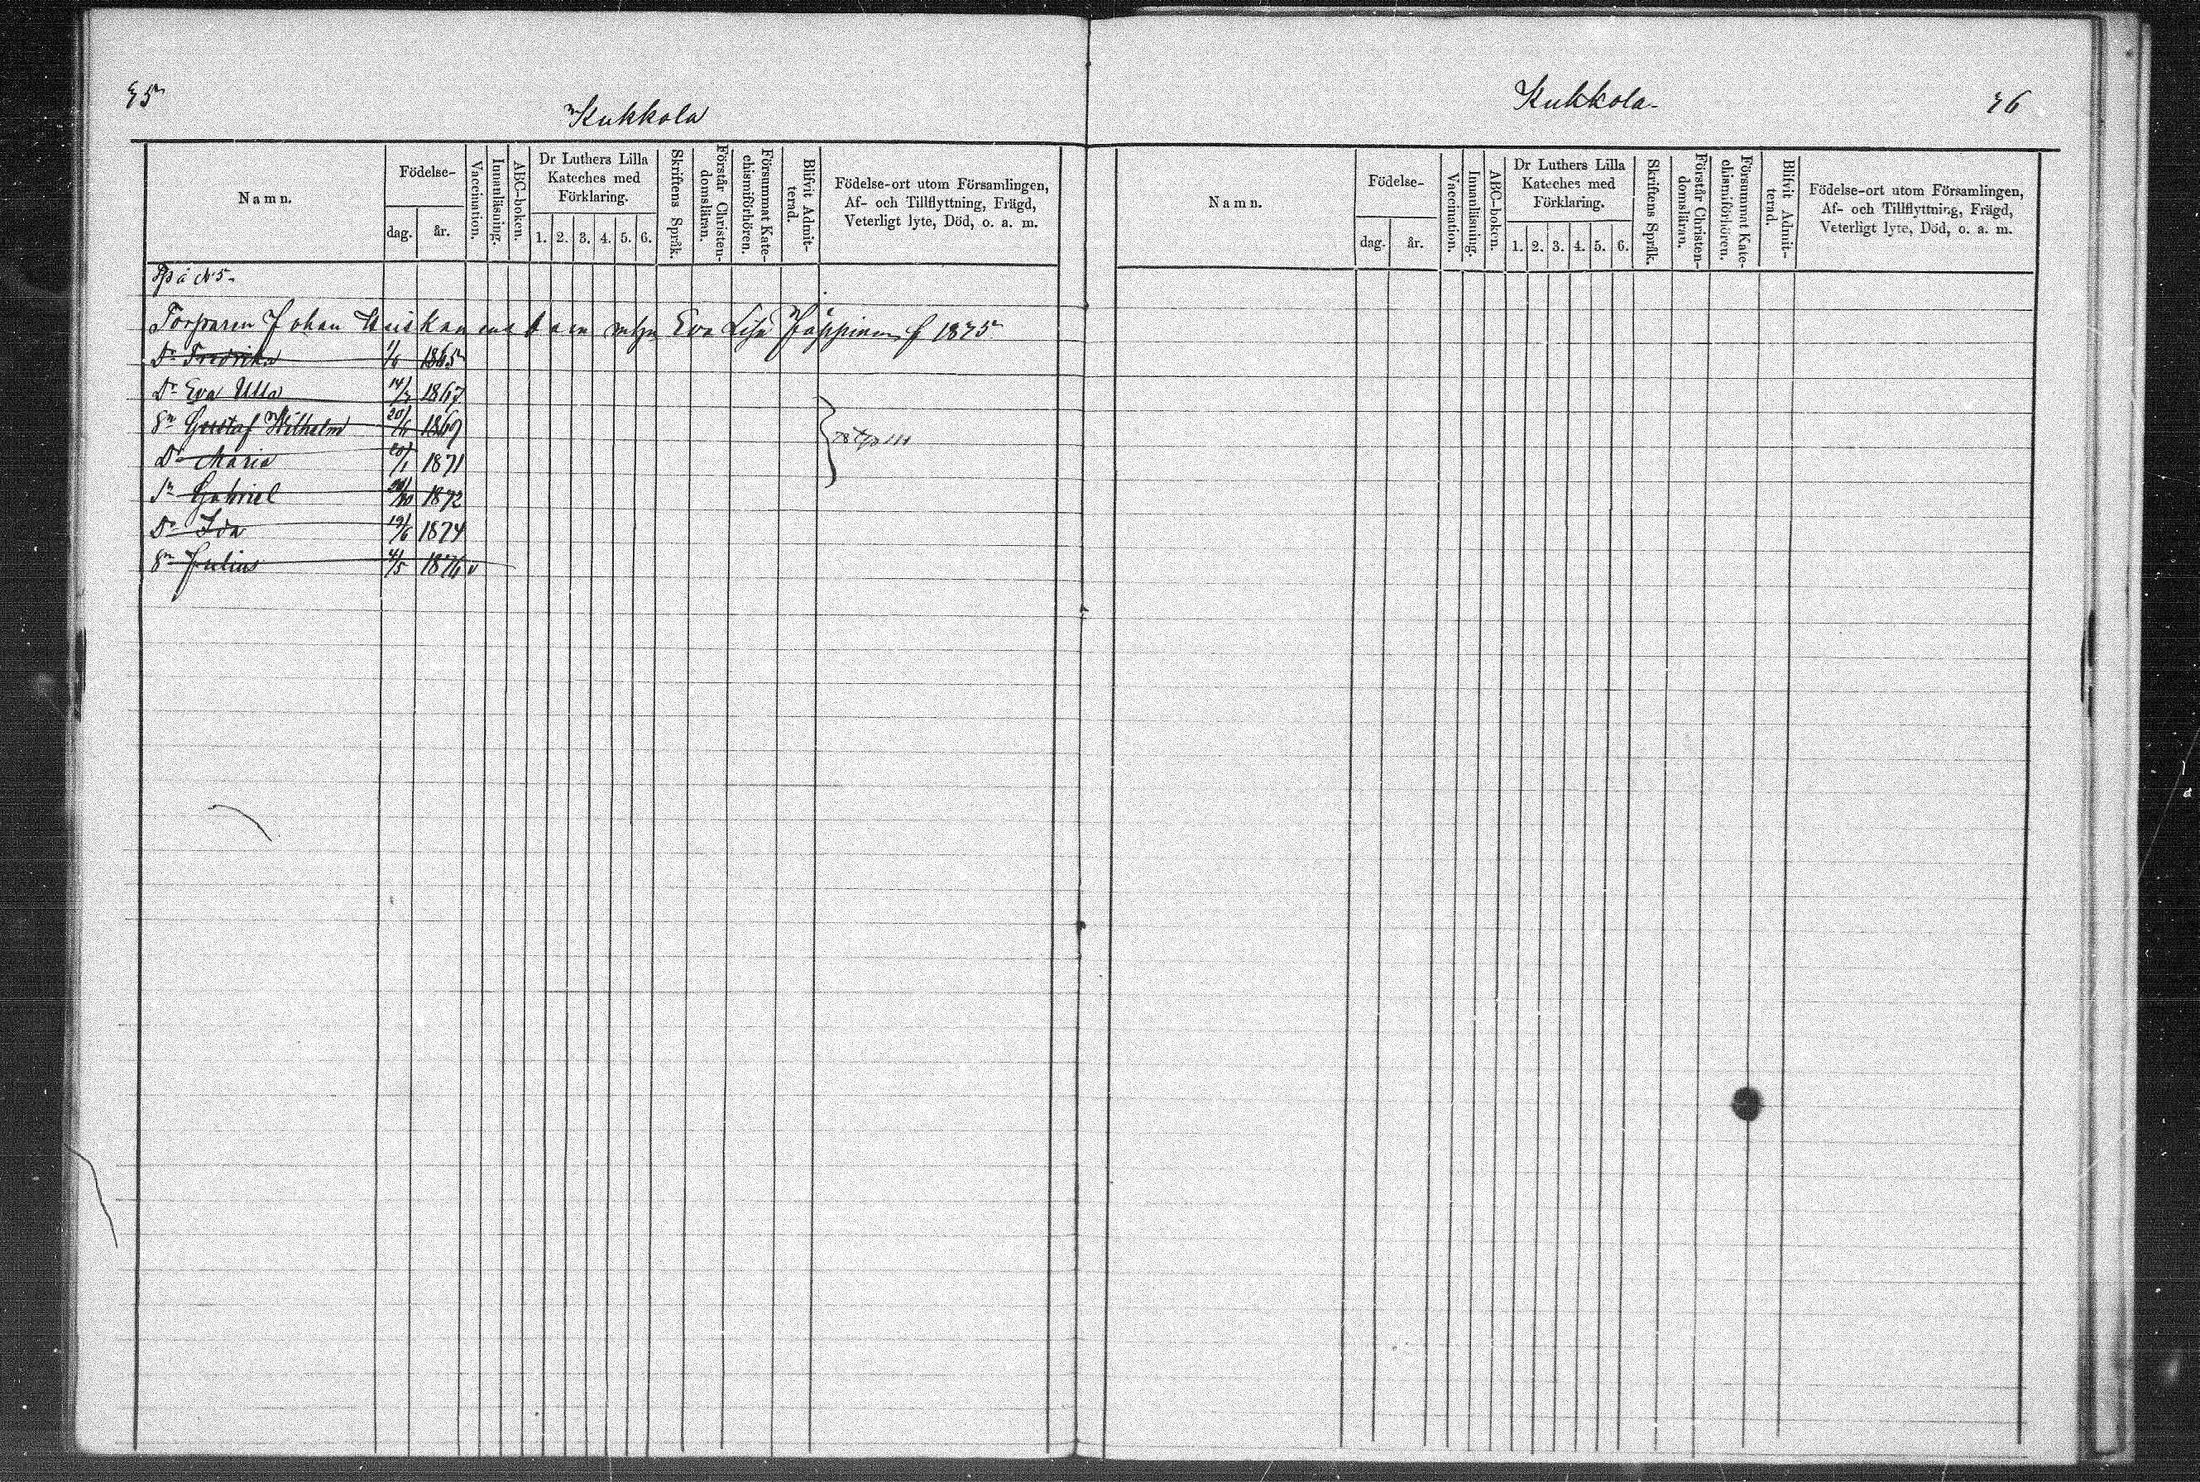 75
Kukkola
Namn.
Födelse-
dag.
år.
Vaccination.
Innanläsning.
ABC-boken.
Dr Luthers Lilla
Kateches med
Förklaring.
1. 2. 3. 4. 5. 6.
Skriftens Språk.
Förstår Christen-
domsläran.
Försummat Kate-
chismiförhören.
Blifvit Admit-
terad.
Födelse-ort utom Församlingen,
Af- och Tillflyttning, Frägd,
Veterligt lyte, Död, o. a. m.
Tp å N 5.
Torparen Johan barn m hn Eva Lisa f 1875
Dr Fredrika 1865
Dr Eva Ulla 1867
Sn Gustaf Wilhelm 1869
Dr Maria 1871
Sn Gabriel 1872
Dr Ida 19/6 1874
Sn Julius 4/5 1876 v
Kukkola
76
Namn.
Födelse-
dag.
år.
Vaccination.
Innanläsning.
ABC-boken.
Dr Luthers Lilla
Kateches med
Förklaring.
1. 2. 3. 4. 5. 6.
Skriftens Språk.
Förstår Christen-
domsläran.
Försummat Kate-
chismiförhören.
Blifvit Admit-
terad.
Födelse-ort utom Församlingen,
Af- och Tillflyttning, Frägd,
Veterligt lyte, Död, o. a. m.